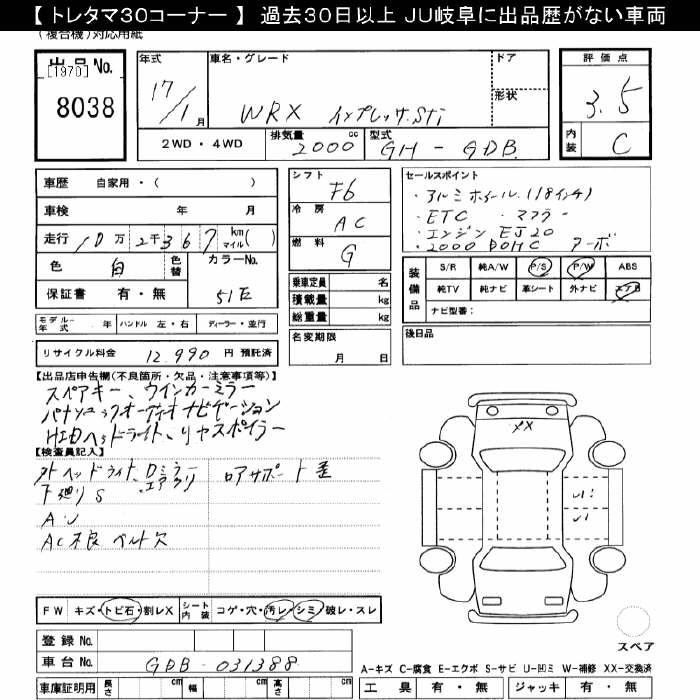 【 トレタマ30コーナー 】 過去30日以上 JU岐阜に出品歴がない車両
(複合機)対応用紙
出品 No. [1970]
8038
年式 17/1月
車名・グレード WRX インプレッサ.STi
ドア
形状
2WD・4WD
排気量 2000 cc
型式 GH - GDB
評価点 3.5
内装 C
車歴 自家用・( )
車検 年 月
走行 10万2千367 km マイル( )
色 白 色替 カラーNo.
保証書 有・無 51E
シフト F6
冷房 AC
燃料 G
乗車定員 名
積載量 kg
総重量 kg
名変期限 月 日
セールスポイント
・アルミホイール.(18インチ)
・ETC ・マフラー
・エンジン EJ20
・2000 DOHC ターボ
装備品
S/R 純A/W P/S P/W ABS
純TV 純ナビ 革シート 外ナビ エアB
ナビ型番:
後日品
モデル年式 年 ハンドル 左・右 ディーラー・並行
リサイクル料金 12,990 円 預託済
【出品店申告欄(不良箇所・欠品・注意事項等)】
スペアキー、ウインカーミラー
パナソニックオーディオナビゲーション
HIDヘッドライト、リヤスポイラー
【検査員記入】
外ヘッドライト、Dミラー ロアサポート歪
下廻りS ・エアクリ
A.U
AC不良 ベルト欠
FW キズ・トビ石・割レX シート内装 コゲ・穴・汚レ・シミ・破レ・スレ
XX
スペア
登録 No.
車台 No. GDB - 031388
A-キズ C-腐食 E-エクボ S-サビ U-凹ミ W-補修 XX-交換済
車庫証明用 長さ cm 幅 cm 高さ cm
工具 有・無 ジャッキ 有・無